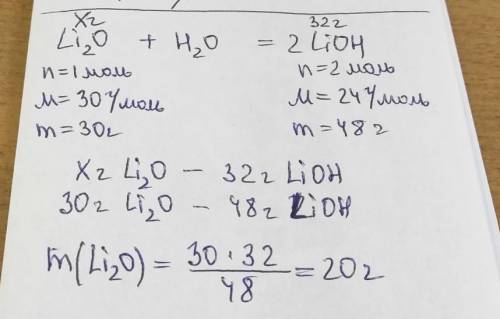 Xг 32г
Li₂O + H₂O = 2 LiOH
n=1моль n=2моль
M=30г/моль M=24г/моль
m=30г m=48г
Xг Li₂O — 32г LiOH
30г Li₂O — 48г LiOH
m(Li₂O) = 30·32/48 = 20г